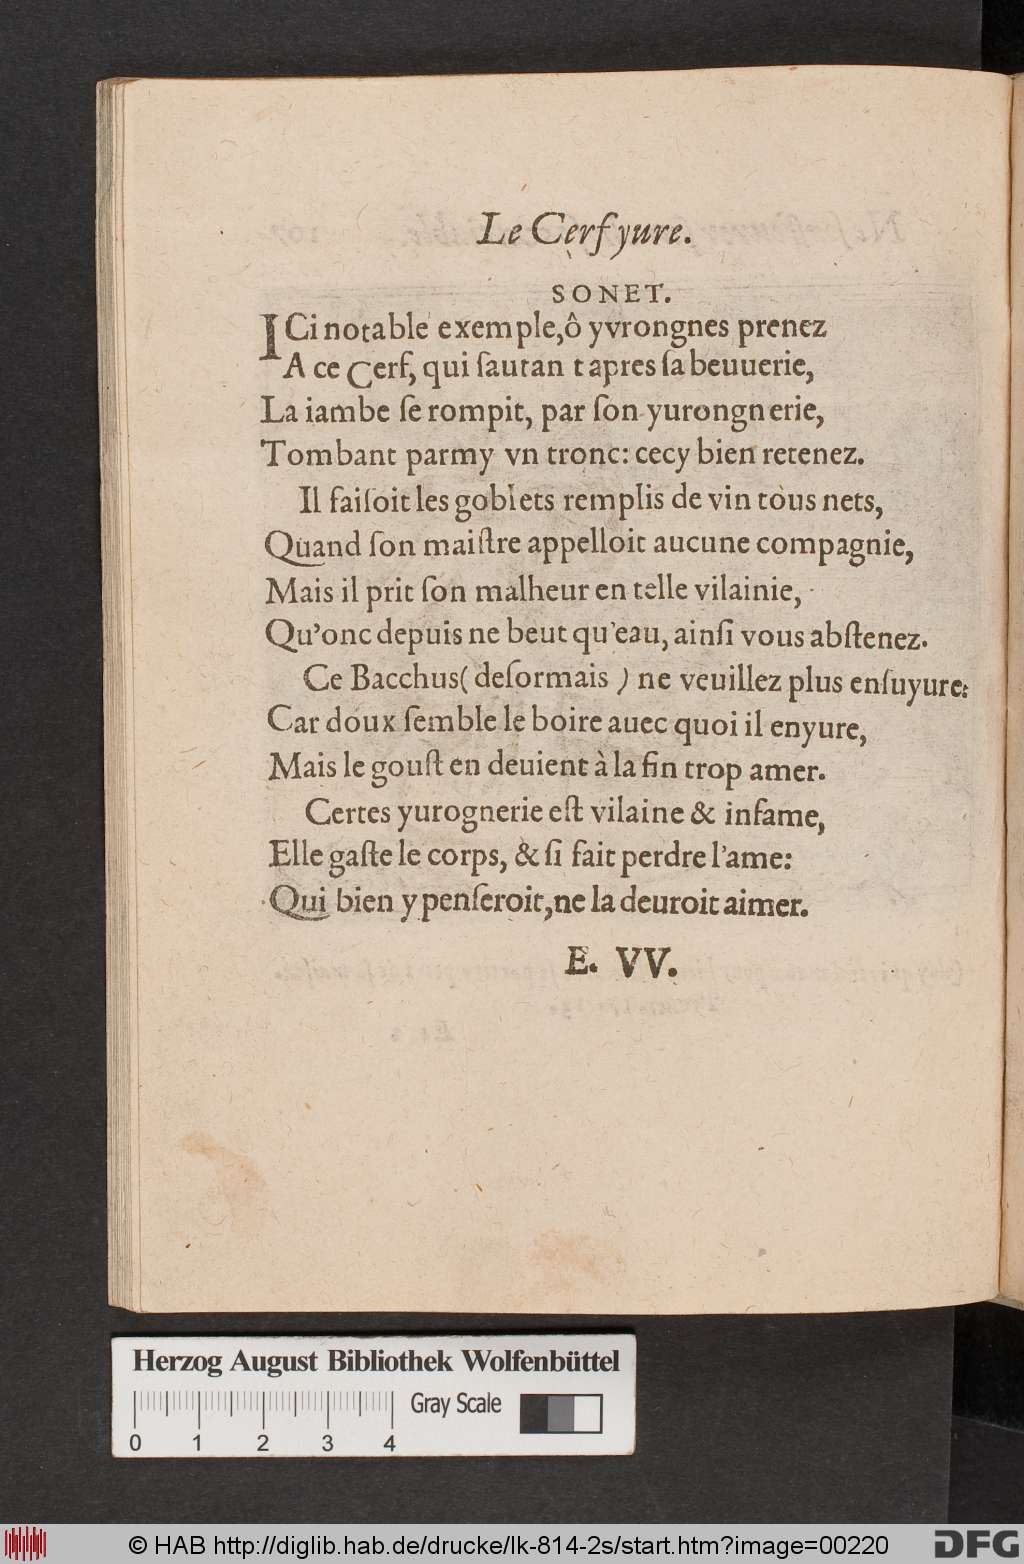 Le Cerf yure.
SONET.
ICi notable exemple, ô yvrongnes prenez
A ce Cerf, qui ſautan t apres ſa beuuerie,
La iambe ſe rompit, par ſon yurongnerie,
Tombant parmy vn tronc: cecy bien retenez.
Il faiſoit les goblets remplis de vin tous nets,
Quand ſon maiſtre appelloit aucune compagnie,
Mais il prit ſon malheur en telle vilainie,
Qu'onc depuis ne beut qu'eau, ainſi vous abſtenez.
Ce Bacchus ( deſormais ) ne veuillez plus enſuyure:
Car doux ſemble le boire auec quoi il enyure,
Mais le gouſt en deuient à la fin trop amer.
Certes yurognerie eſt vilaine & infame,
Elle gaſte le corps, & ſi fait perdre l'ame:
Qui bien y penſeroit, ne la deuroit aimer.
E. VV.
Herzog August Bibliothek Wolfenbüttel
Gray Scale
0 1 2 3 4
© HAB http://diglib.hab.de/drucke/lk-814-2s/start.htm?image=00220
DFG